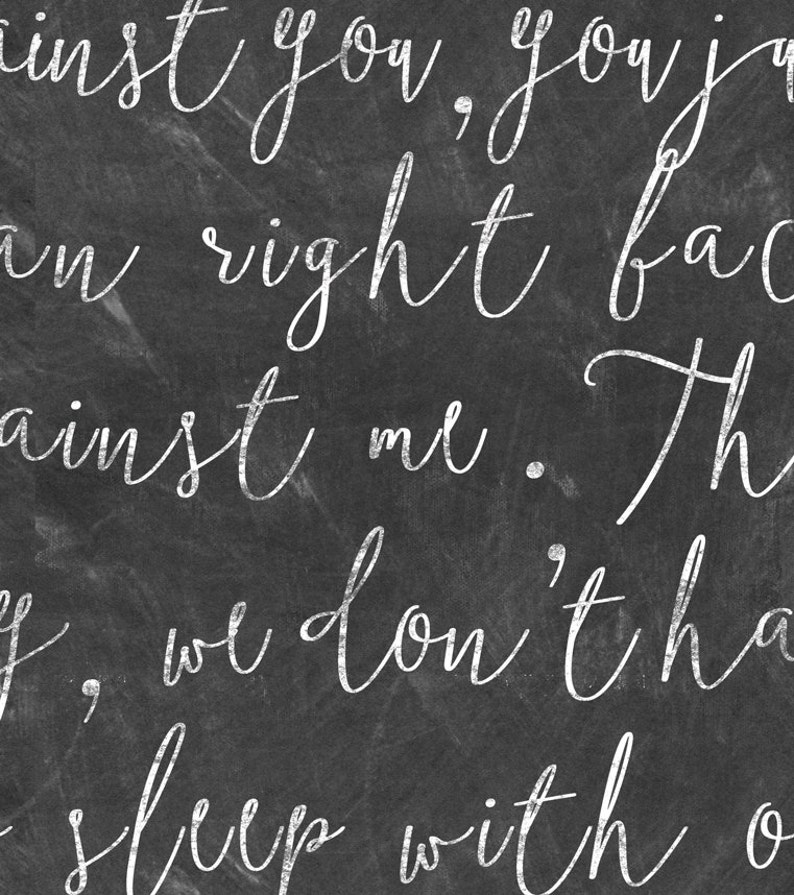 ainst you, you ja
an right fac
ainst me. Th
y, we don't ha
sleep with o